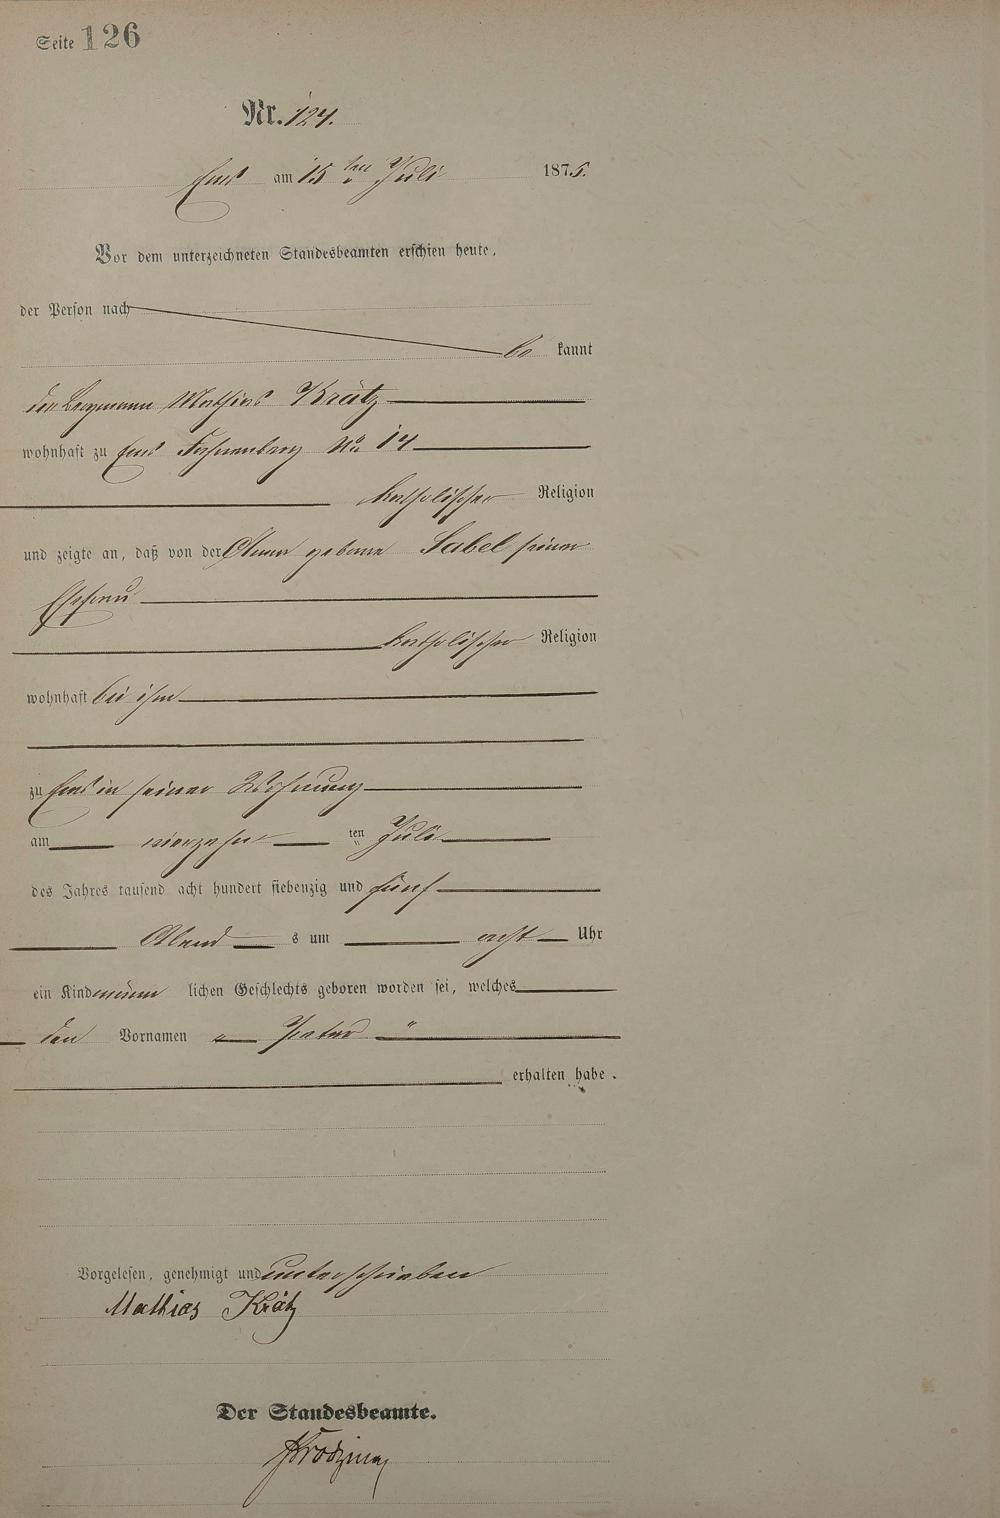 Seite 126
Nr. 124.
Ems am 15ten Juli 1875.
Vor dem unterzeichneten Standesbeamten erschien heute,
der Person nach
be kannt
der Bergmann Mathias Krätz
wohnhaft zu Ems No 14
katholischer Religion
und zeigte an, daß von der Anna geborne Sabel seiner
Ehefrau
katholischer Religion
wohnhaft bei ihm
zu Ems in seiner Wohnung
am vierzehn ten Juli
des Jahres tausend acht hundert siebenzig und fünf
Abend s um acht Uhr
ein Kind männ lichen Geschlechts geboren worden sei, welches
den Vornamen „ Peter "
erhalten habe.
Vorgelesen, genehmigt und unterschrieben
Mathias Krätz
Der Standesbeamte.